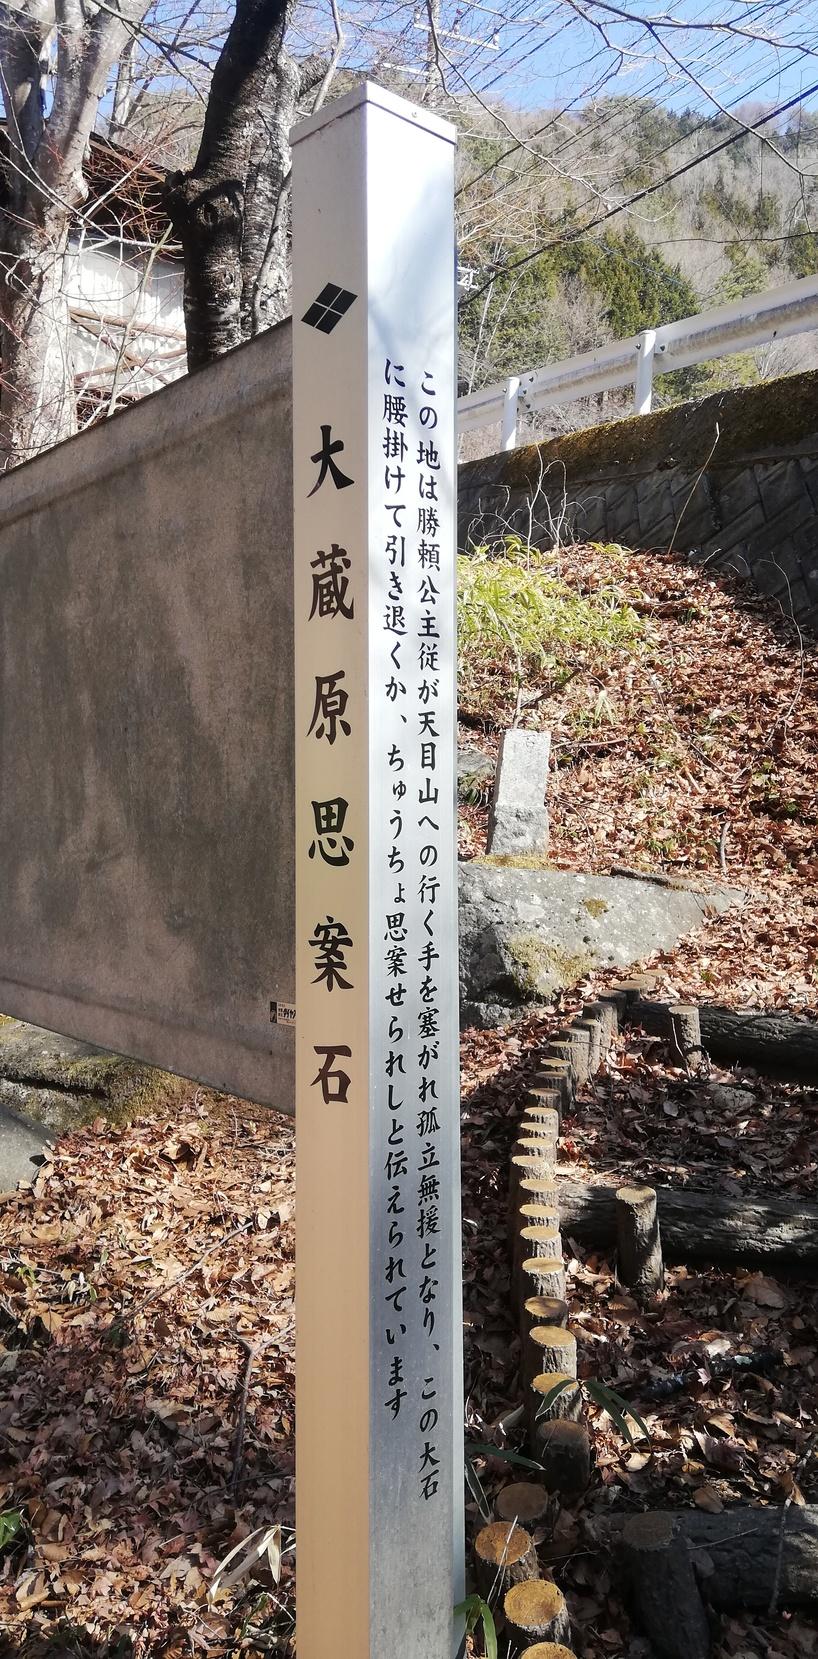 大蔵原思案石
この地は勝頼公主従が天目山への行く手を塞がれ孤立無援となり、この大石
に腰掛けて引き退くか、ちゅうちょ思案せられしと伝えられています